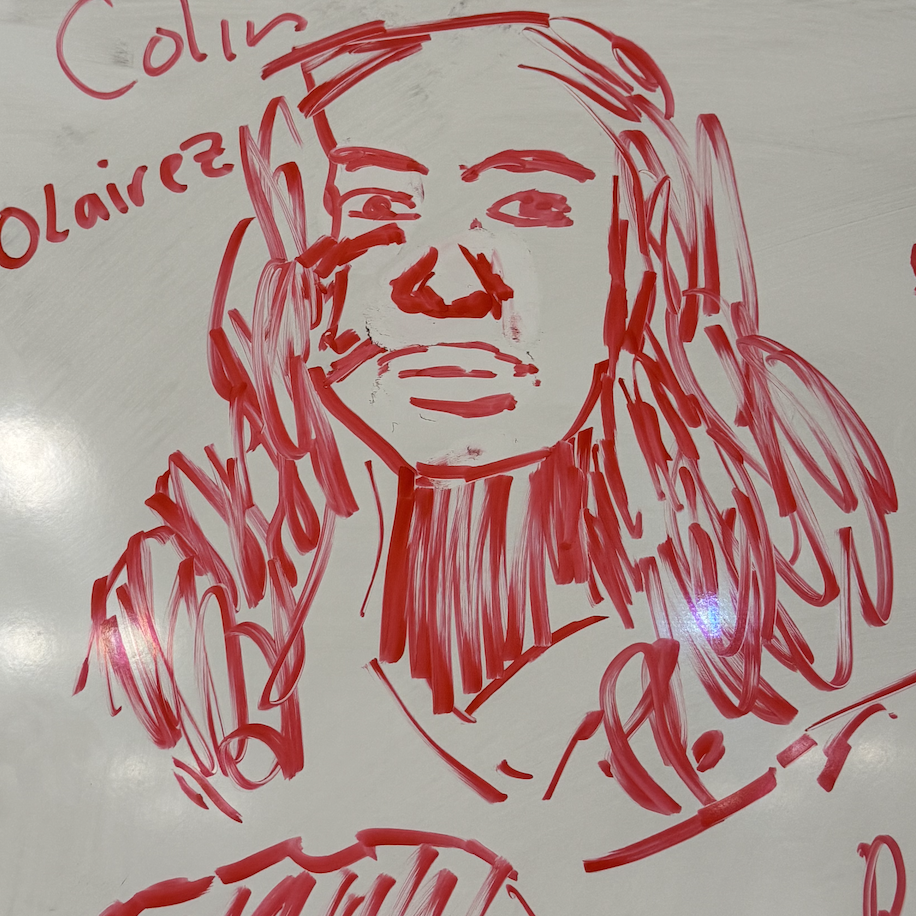 Colin
Olairez